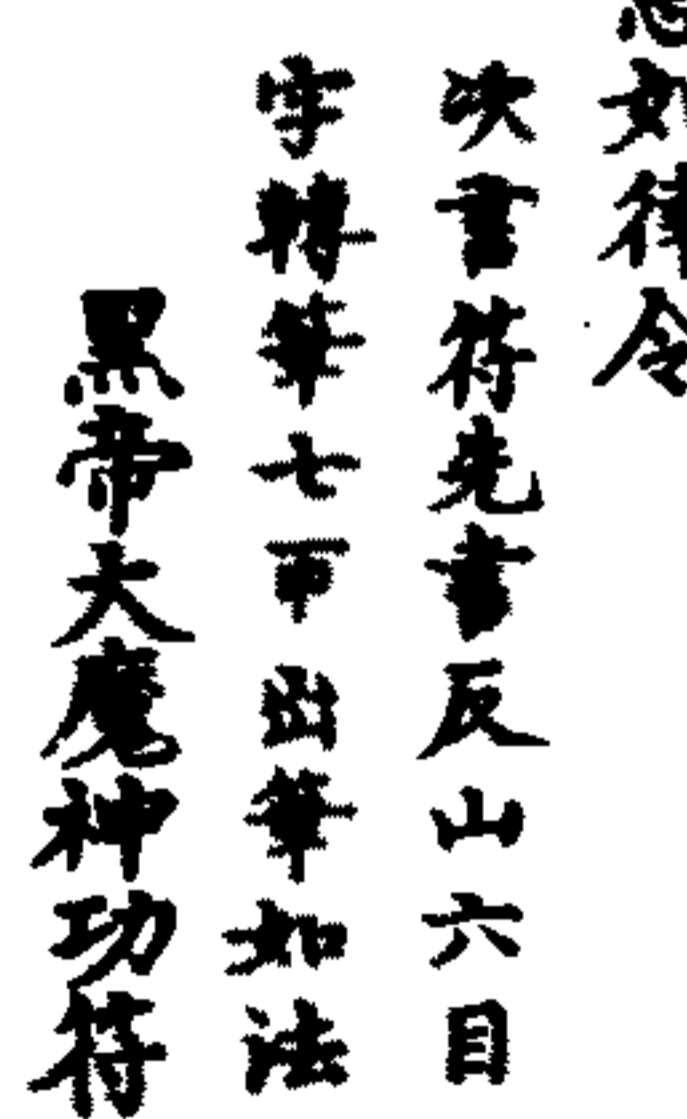 急如律令
次書符先書反山六目
字轉筆七帀出筆如法
黑帝大魔神功符